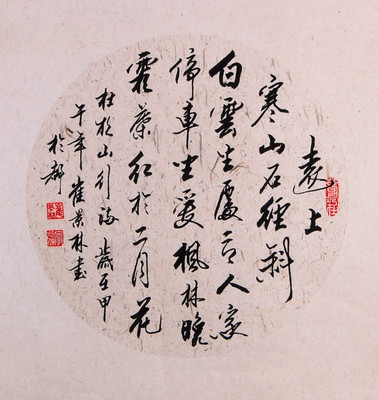 遠上
寒山石徑斜
白雲生處有人家
停車坐愛楓林晚
霜葉紅於二月花
杜牧山行詩歲在甲
午年崔景林書
於都